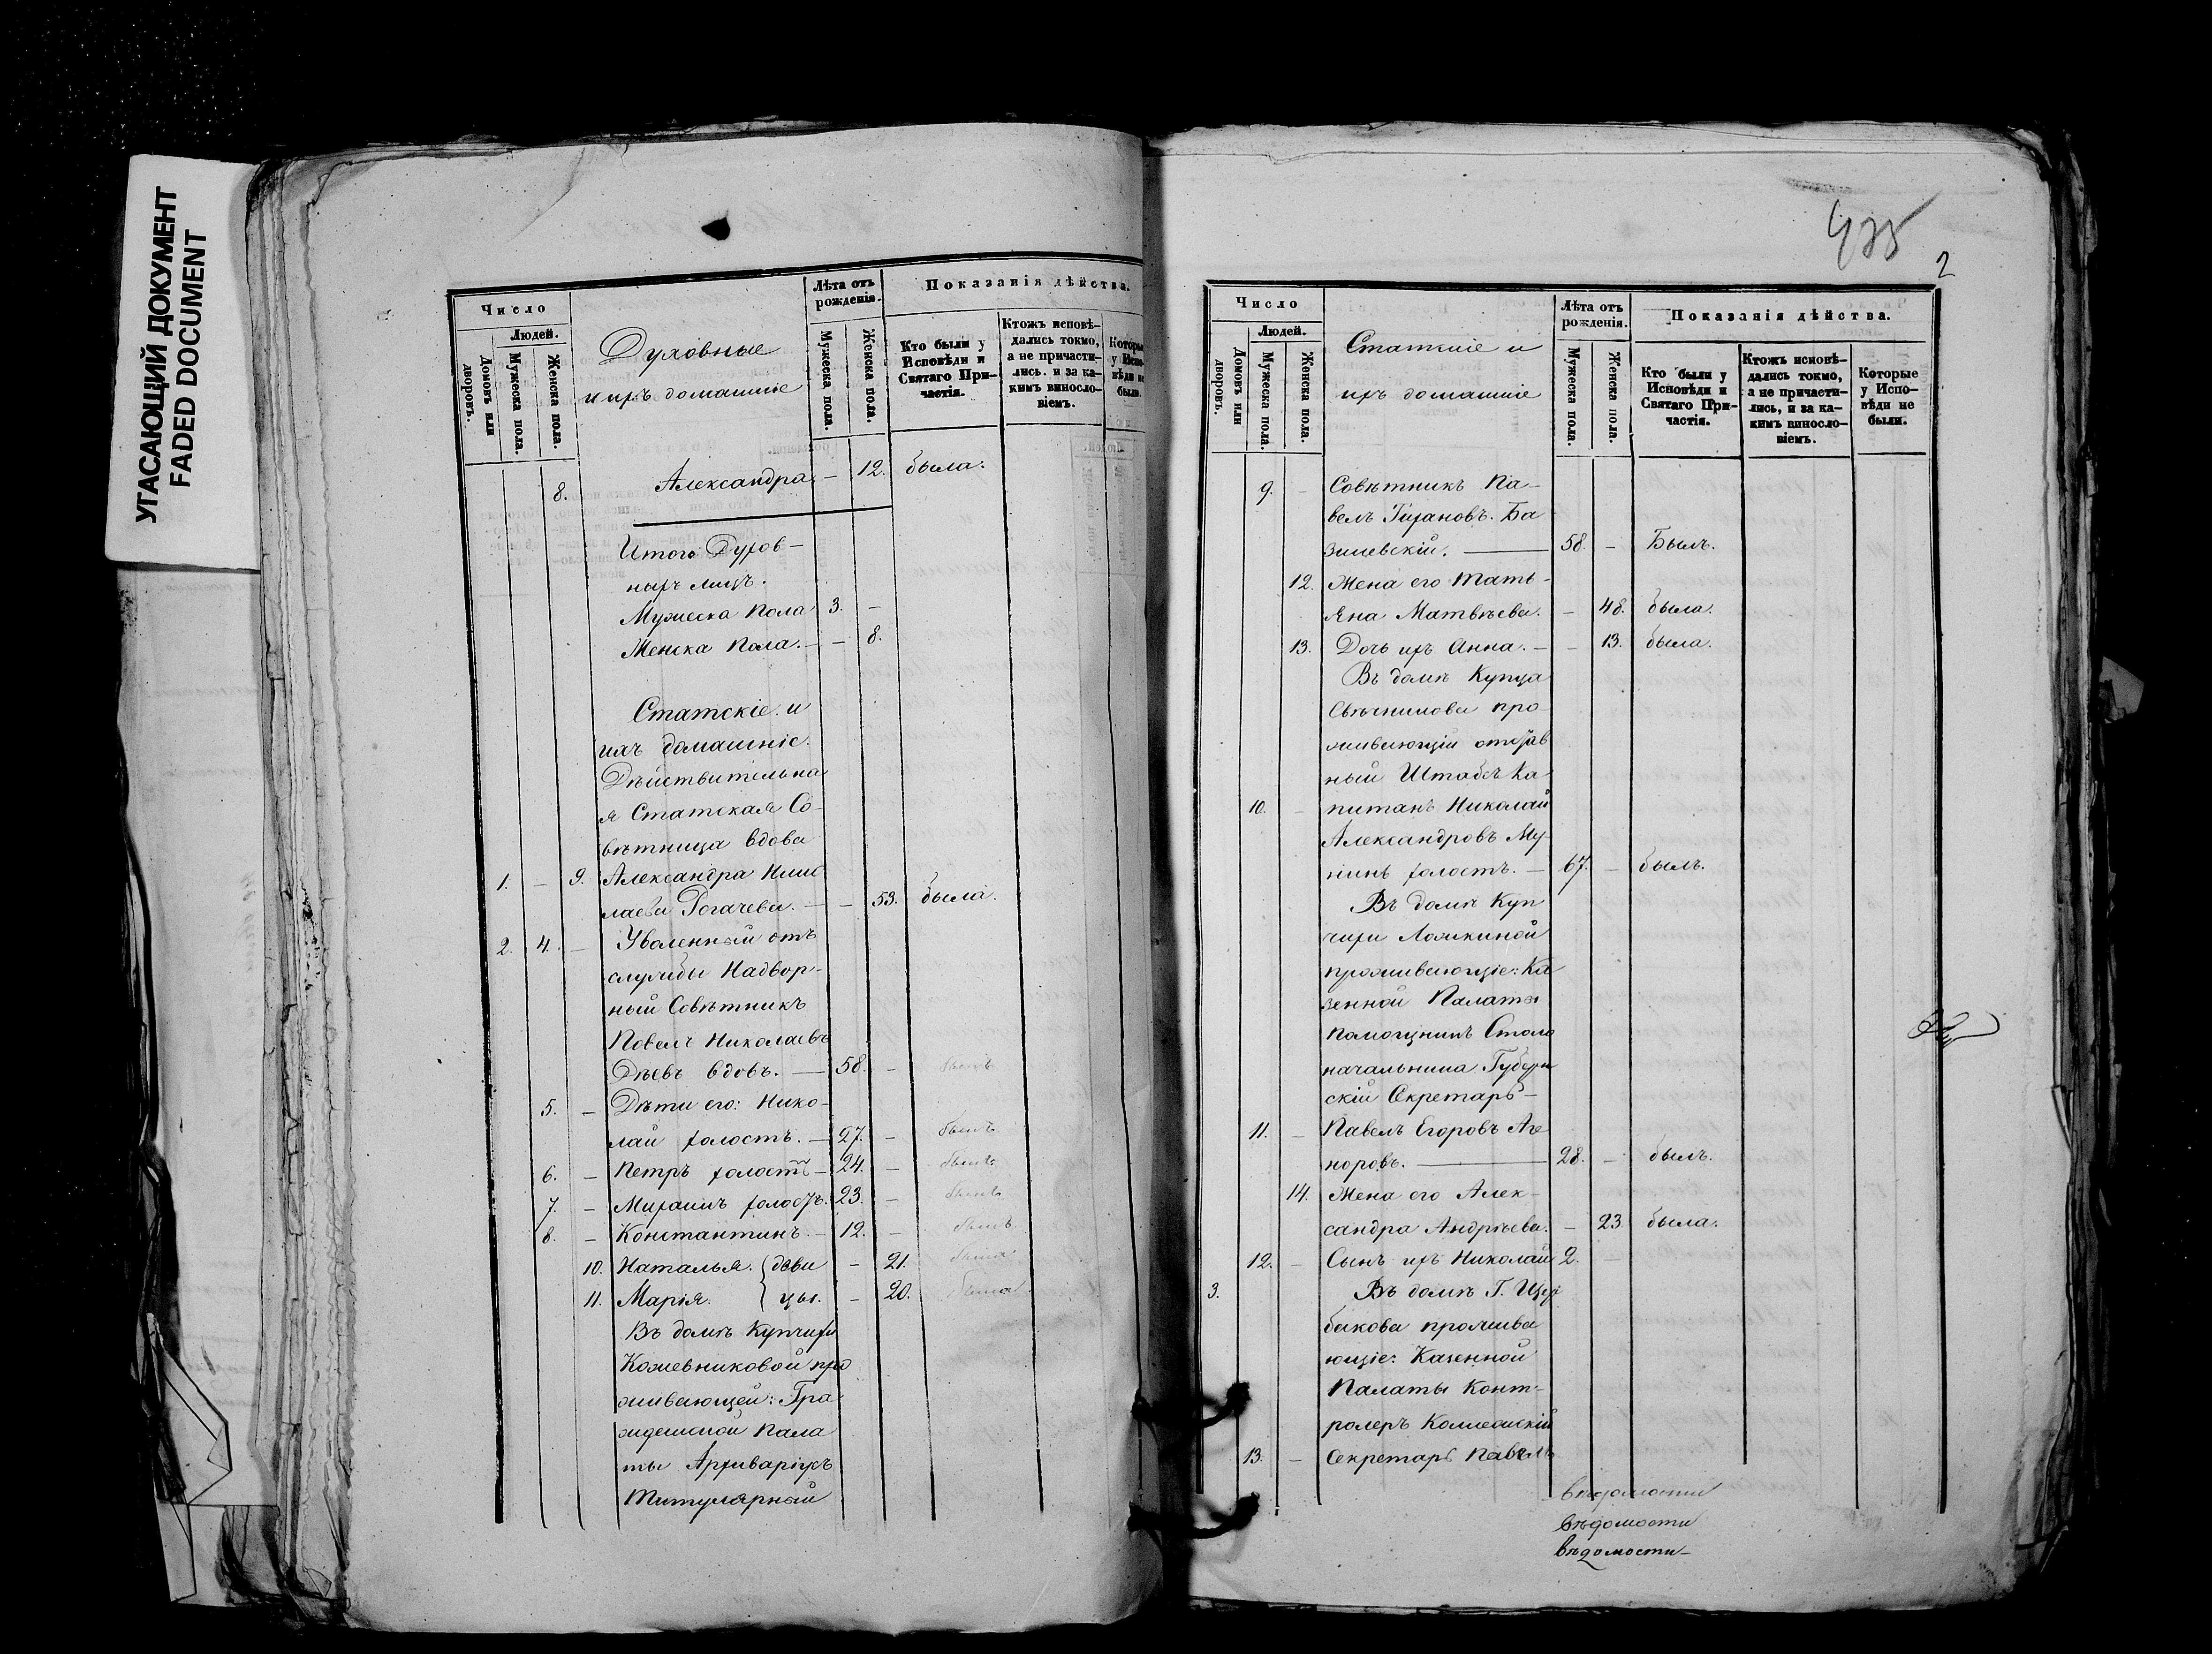 УГАСАЮЩИЙ ДОКУМЕНТ
FADED DOCUMENT
Число
Людей.
Домовъ или дворовъ.
Мужеска пола.
Женска пола.
Духовные
и ихъ домашніе
Лѣта отъ рожденія.
Мужеска пола.
Женска пола.
Показанія дѣйства.
Кто были у Исповѣди и Святаго Причастія.
Ктожъ исповѣдались токмо, а не причастились, и за какимъ винословіемъ.
Которые у Исповѣди не были.
8. Александра — 12. была.
Итого Духов-
ныхъ лицъ.
Мужеска Пола 3. —
Женска Пола. — — 8.
Статскіе и
ихъ домашніе.
Дѣйствительна
я Статская Со-
вѣтница вдова
1. — 9. Александра Нико
лаева Рогачева. — — 53. была.
2. 4. — Уволенный отъ
службы Надвор-
ный Совѣтникъ
Павелъ Николаевъ
Дѣевъ вдовъ. — 58. — былъ
5. — Дѣти его: Нико-
лай холостъ. — 27. — былъ
6. — Петръ холостъ — 24. — былъ
7. — Михаилъ холостъ. 23. — былъ
8. — Константинъ. — 12. — былъ
10. Наталья. { дѣви — 21. была
11. Марія. { цы. — 20. была
Въ домѣ Купчихи
Кожевниковой про
живающей: Гра-
жданской Пала
ты Архиваріусъ
Титулярный
435
2
Число
Людей.
Домовъ или дворовъ.
Мужеска пола.
Женска пола.
Статскіе и
ихъ домашніе
Лѣта отъ рожденія.
Мужеска пола.
Женска пола.
Показанія дѣйства.
Кто были у Исповѣди и Святаго Причастія.
Ктожъ исповѣдались токмо, а не причастились, и за какимъ винословіемъ.
Которые у Исповѣди не были.
9. — Совѣтникъ Па-
велъ Ба
зилевскій. — 58. — Былъ.
12. Жена его Тать-
яна Матвѣева. — 48. была.
13. Дочь ихъ Анна. — — 13. была.
Въ домѣ Купца
Свѣчникова про-
живающій отстав
ный Штабсъ Ка
10. — питанъ Николай
Александровъ Му-
нинъ холостъ. — 67. — былъ.
Въ домѣ Куп
чихи Ложкиной
проживающіе: Ка
зенной Палаты
помощникъ Столо
начальника Губерн
скій Секретарь —
11. — Павелъ Егоровъ Аге
норовъ. — 28. — былъ.
14. Жена его Алек-
сандра Андреева. — 23. была.
12. — Сынъ ихъ Николай 2. —
3. Въ домѣ Г. Щер
бакова прожива
ющіе: Казенной
Палаты Конт-
ролеръ Коллежскій
13. — Секретарь Павелъ
вѣдомости
вѣдомости
вѣдомости